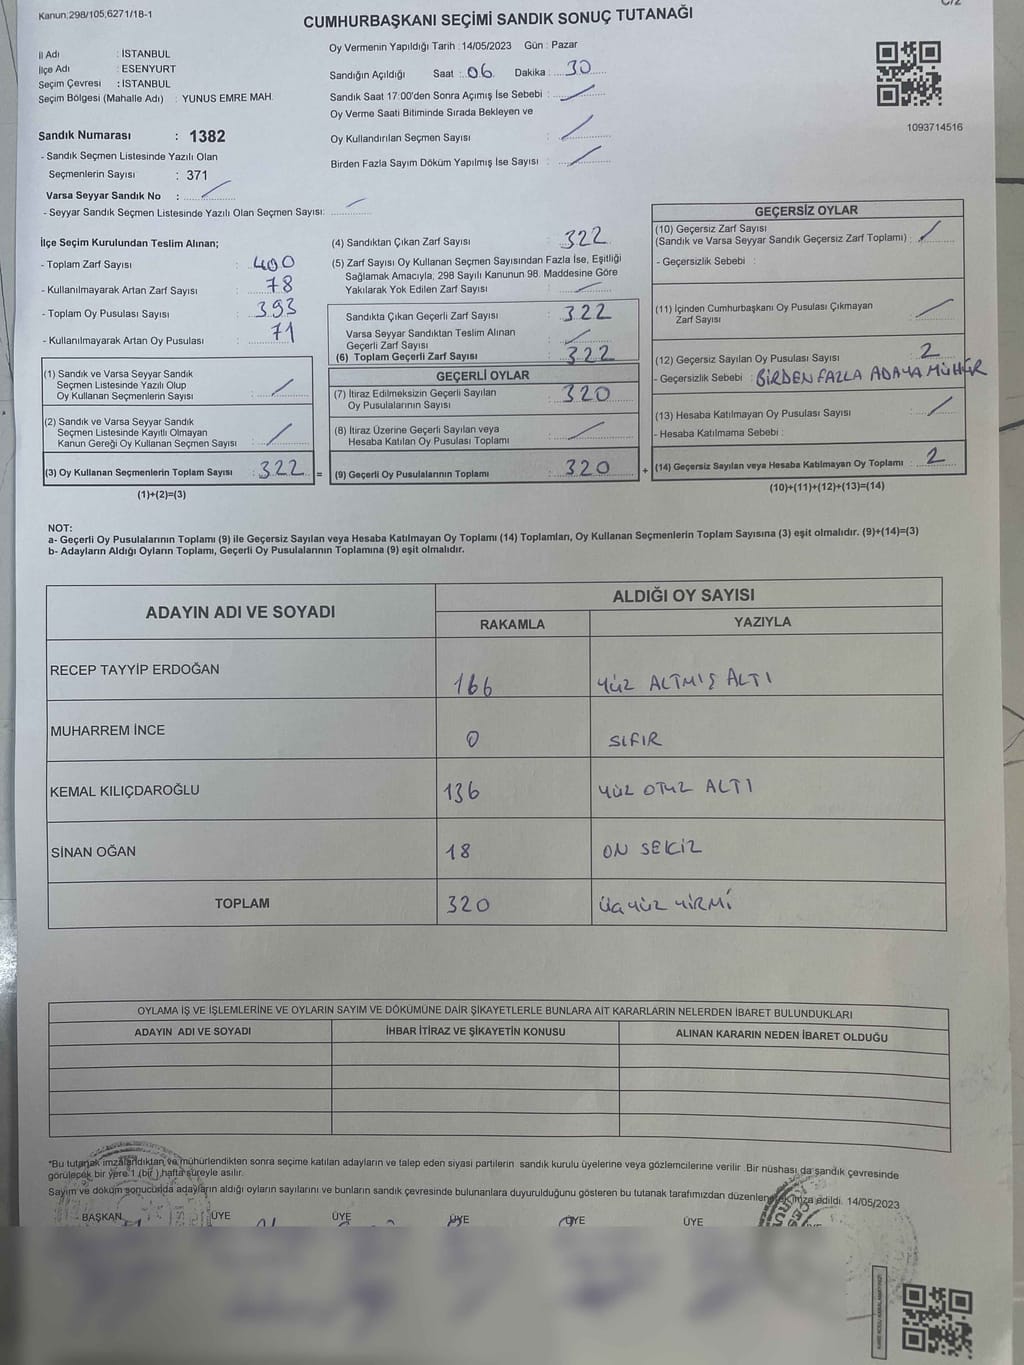 Kanun;298/105;6271/18-1
C/2
CUMHURBAŞKANI SEÇİMİ SANDIK SONUÇ TUTANAĞI
İl Adı : İSTANBUL
İlçe Adı : ESENYURT
Seçim Çevresi : İSTANBUL
Seçim Bölgesi (Mahalle Adı) : YUNUS EMRE MAH.
Sandık Numarası : 1382
- Sandık Seçmen Listesinde Yazılı Olan
Seçmenlerin Sayısı : 371
Varsa Seyyar Sandık No :
- Seyyar Sandık Seçmen Listesinde Yazılı Olan Seçmen Sayısı:
Oy Vermenin Yapıldığı Tarih : 14/05/2023 Gün : Pazar
Sandığın Açıldığı Saat : 06 Dakika : 30
Sandık Saat 17:00'den Sonra Açımış İse Sebebi :
Oy Verme Saati Bitiminde Sırada Bekleyen ve
Oy Kullandırılan Seçmen Sayısı :
Birden Fazla Sayım Döküm Yapılmış İse Sayısı :
1093714516
İlçe Seçim Kurulundan Teslim Alınan;
- Toplam Zarf Sayısı : 400
- Kullanılmayarak Artan Zarf Sayısı : 78
- Toplam Oy Pusulası Sayısı : 393
- Kullanılmayarak Artan Oy Pusulası : 71
(1) Sandık ve Varsa Seyyar Sandık
Seçmen Listesinde Yazılı Olup
Oy Kullanan Seçmenlerin Sayısı :
(2) Sandık ve Varsa Seyyar Sandık
Seçmen Listesinde Kayıtlı Olmayan
Kanun Gereği Oy Kullanan Seçmen Sayısı :
(3) Oy Kullanan Seçmenlerin Toplam Sayısı : 322 =
(1)+(2)=(3)
(4) Sandıktan Çıkan Zarf Sayısı : 322
(5) Zarf Sayısı Oy Kullanan Seçmen Sayısından Fazla İse, Eşitliği
Sağlamak Amacıyla; 298 Sayılı Kanunun 98. Maddesine Göre
Yakılarak Yok Edilen Zarf Sayısı :
Sandıkta Çıkan Geçerli Zarf Sayısı : 322
Varsa Seyyar Sandıktan Teslim Alınan
Geçerli Zarf Sayısı :
(6) Toplam Geçerli Zarf Sayısı : 322
GEÇERLİ OYLAR
(7) İtiraz Edilmeksizin Geçerli Sayılan
Oy Pusulalarının Sayısı : 320
(8) İtiraz Üzerine Geçerli Sayılan veya
Hesaba Katılan Oy Pusulası Toplamı :
(9) Geçerli Oy Pusulalarının Toplamı : 320 +
GEÇERSİZ OYLAR
(10) Geçersiz Zarf Sayısı
(Sandık ve Varsa Seyyar Sandık Geçersiz Zarf Toplamı) :
- Geçersizlik Sebebi :
(11) İçinden Cumhurbaşkanı Oy Pusulası Çıkmayan
Zarf Sayısı :
(12) Geçersiz Sayılan Oy Pusulası Sayısı : 2
- Geçersizlik Sebebi : BİRDEN FAZLA ADAYA MÜHÜR
(13) Hesaba Katılmayan Oy Pusulası Sayısı :
- Hesaba Katılmama Sebebi :
(14) Geçersiz Sayılan veya Hesaba Katılmayan Oy Toplamı : 2
(10)+(11)+(12)+(13)=(14)
NOT:
a- Geçerli Oy Pusulalarının Toplamı (9) ile Geçersiz Sayılan veya Hesaba Katılmayan Oy Toplamı (14) Toplamları, Oy Kullanan Seçmenlerin Toplam Sayısına (3) eşit olmalıdır. (9)+(14)=(3)
b- Adayların Aldığı Oyların Toplamı, Geçerli Oy Pusulalarının Toplamına (9) eşit olmalıdır.
ADAYIN ADI VE SOYADI
ALDIĞI OY SAYISI
RAKAMLA YAZIYLA
RECEP TAYYİP ERDOĞAN 166 YÜZ ALTMIŞ ALTI
MUHARREM İNCE 0 SIFIR
KEMAL KILIÇDAROĞLU 136 YÜZ OTUZ ALTI
SİNAN OĞAN 18 ON SEKİZ
TOPLAM 320 ÜÇYÜZ YİRMİ
OYLAMA İŞ VE İŞLEMLERİNE VE OYLARIN SAYIM VE DÖKÜMÜNE DAİR ŞİKAYETLERLE BUNLARA AİT KARARLARIN NELERDEN İBARET BULUNDUKLARI
ADAYIN ADI VE SOYADI İHBAR İTİRAZ VE ŞİKAYETİN KONUSU ALINAN KARARIN NEDEN İBARET OLDUĞU
*Bu tutanak imzalandıktan ve mühürlendikten sonra seçime katılan adayların ve talep eden siyasi partilerin sandık kurulu üyelerine veya gözlemcilerine verilir. Bir nüshası da sandık çevresinde
görülecek bir yere 1 (bir) hafta süreyle asılır.
Sayım ve döküm sonucunda adayların aldığı oyların sayılarını ve bunların sandık çevresinde bulunanlara duyurulduğunu gösteren bu tutanak tarafımızdan düzenlenerek imza edildi. 14/05/2023
BAŞKAN ÜYE ÜYE ÜYE ÜYE ÜYE